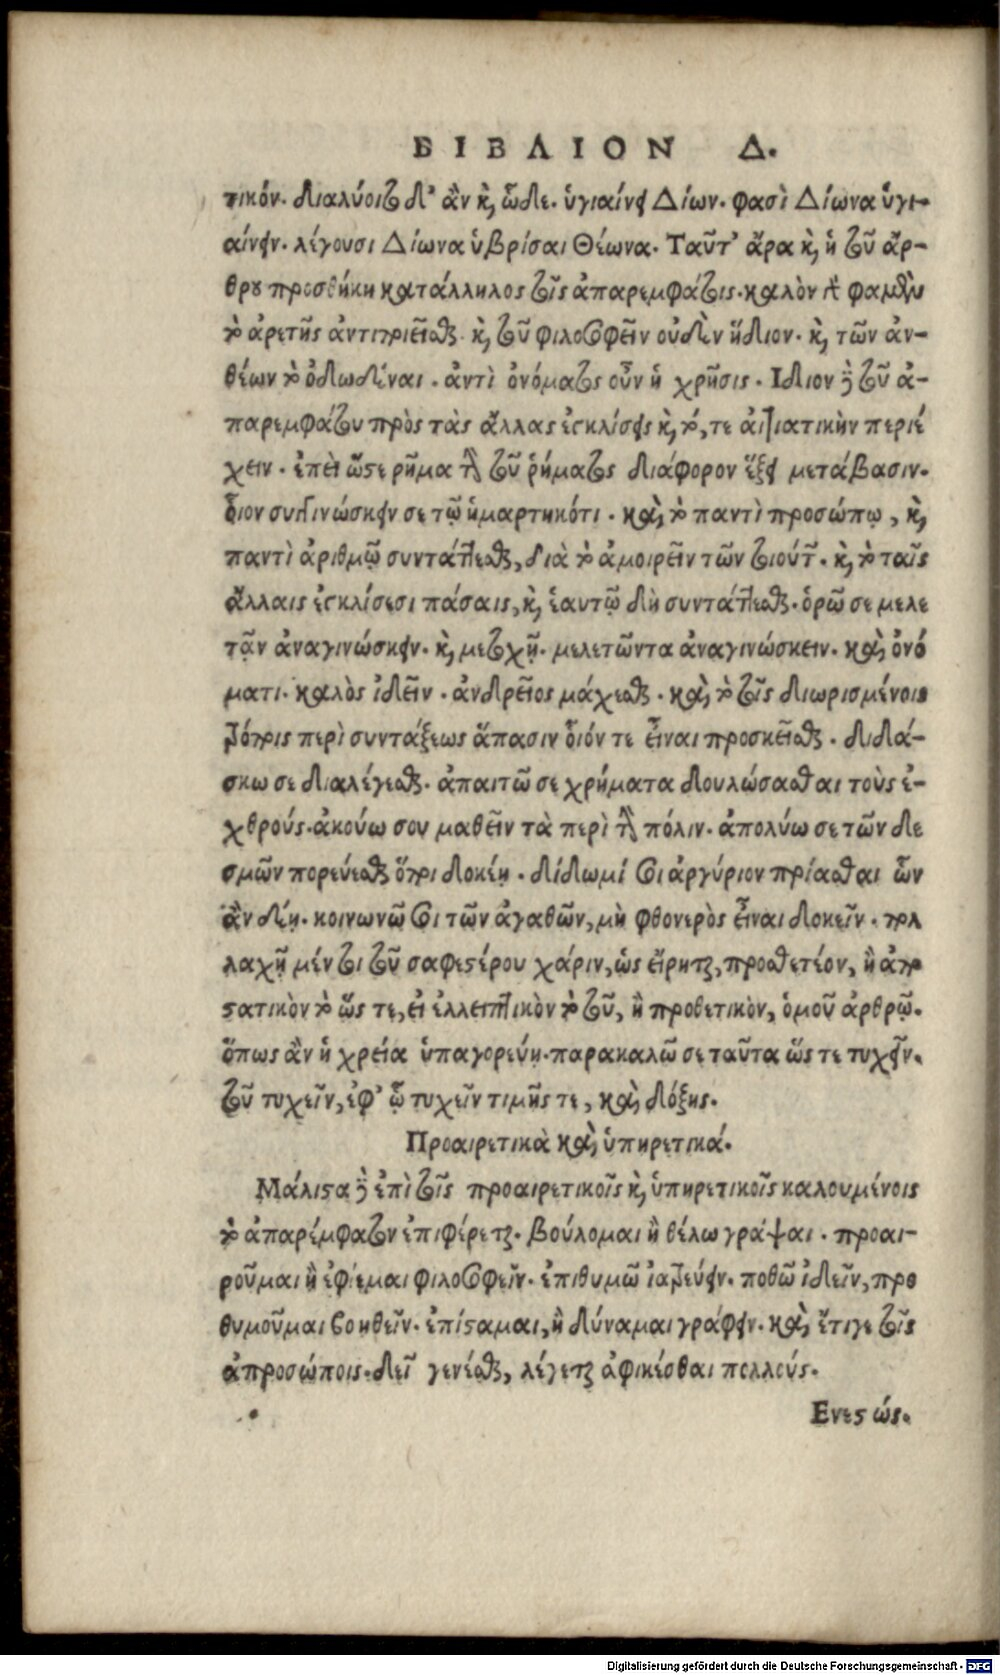 ΒΙΒΛΙΟΝ Δ.
τικόν. διαλύοιτο δ' ἂν κὶ ὧδε. ὑγιαίνει Δίων. φασὶ Δίωνα ὑγι-
αίνειν. λέγουσι Δίωνα ὑβρίσαι Θέωνα. Ταῦτ' ἄρα κὶ ἡ τοῦ ἄρ-
θρου προσθήκη κατάλληλος τοῖς ἀπαρεμφάτοις. καλὸν γάρ φαμεν
τὸ ἀρετῆς ἀντιποιεῖσθαι. κὶ τοῦ φιλοσοφεῖν οὐδὲν ἥδιον. κὶ τῶν ἀν-
θέων τὸ ὀδωδέναι. ἀντὶ ὀνόματος οὖν ἡ χρῆσις. Ιδιον δὲ τοῦ ἀ-
παρεμφάτου πρὸς τὰς ἄλλας ἐγκλίσεις κὶ τό, τε αἰτιατικὴν περιέ
χειν. ἐπεὶ ὥστε ρῆμα τὴν τοῦ ῥήματος διάφορον ἕξει μετάβασιν.
οἷον συγγινώσκειν σε τῷ ἡμαρτηκότι. καὶ τὸ παντὶ προσώπῳ, κὶ
παντὶ ἀριθμῷ συντάττεσθαι, διὰ τὸ ἀμοιρεῖν τῶν τοιούτων. κὶ τὸ ταῖς
ἄλλαις ἐγκλίσεσι πάσαις, κὶ ἑαυτῷ δὴ συντάττεσθαι. ὁρῶ σε μελε
τᾷν ἀναγινώσκειν. κὶ μετοχῇ. μελετῶντα ἀναγινώσκειν. καὶ ὀνό
ματι. καλὸς ἰδεῖν. ἀνδρεῖος μάχεσθαι. καὶ τὸ τοῖς διωρισμένοις
τόποις περὶ συντάξεως ἅπασιν οἷόν τε εἶναι προσκεῖσθαι. διδά-
σκω σε διαλέγεσθαι. ἀπαιτῶ σε χρήματα δουλώσασθαι τοὺς ἐ-
χθρούς. ἀκούω σου μαθεῖν τὰ περὶ τὴν πόλιν. ἀπολύω σε τῶν δε
σμῶν πορεύεσθαι ὅποι δοκέῃ. δίδωμί σοι ἀργύριον πρίασθαι ὧν
ἂν δέῃ. κοινωνῶ σοι τῶν ἀγαθῶν, μὴ φθονερὸς εἶναι δοκεῖν. πολ
λαχῇ μέν τοι τοῦ σαφεστέρου χάριν, ὡς εἴρηται, προσθετέον, ἢ ἀπο
στατικὸν τὸ ὥς τε, εἰ ἐλλειπτικὸν τὸ τοῦ, ἢ προθετικὸν, ὁμοῦ ἀρθρῷ.
ὅπως ἂν ἡ χρεία ὑπαγορεύῃ. παρακαλῶ σε ταῦτα ὥς τε τυχεῖν.
τοῦ τυχεῖν, ἐφ' ᾧ τυχεῖν τιμῆς τε, καὶ δόξης.
Προαιρετικὰ καὶ ὑπηρετικά.
Μάλιστα δὲ ἐπὶ τοῖς προαιρετικοῖς κὶ ὑπηρετικοῖς καλουμένοις
τὸ ἀπαρέμφατον ἐπιφέρεται. βούλομαι ἢ θέλω γράψαι. προαι-
ροῦμαι ἢ ἐφίεμαι φιλοσοφεῖν. ἐπιθυμῶ ἰατρεύειν. ποθῶ ἰδεῖν, προ
θυμοῦμαι βοηθεῖν. ἐπίσταμαι, ἢ δύναμαι γράφειν. καὶ ἔτι γε τοῖς
ἀπροσώποις. δεῖ γενέσθαι, λέγεται ἀφικέσθαι πολλούς.
Ενεστώς.
Digitalisierung gefördert durch die Deutsche Forschungsgemeinschaft - DFG